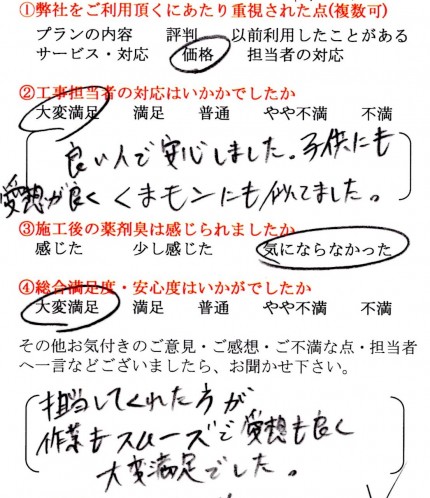 ①弊社をご利用頂くにあたり重視された点(複数可)
プランの内容　評判　以前利用したことがある
サービス・対応　価格　担当者の対応
②工事担当者の対応はいかがでしたか
大変満足　満足　普通　やや不満　不満
良い人で安心しました。子供にも
愛想が良くくまモンにも似てました。
③施工後の薬剤臭は感じられましたか
感じた　少し感じた　気にならなかった
④総合満足度・安心度はいかがでしたか
大変満足　満足　普通　やや不満　不満
その他お気付きのご意見・ご感想・ご不満な点・担当者
へ一言などございましたら、お聞かせ下さい。
担当してくれた方が
作業もスムーズで愛想も良く
大変満足でした。